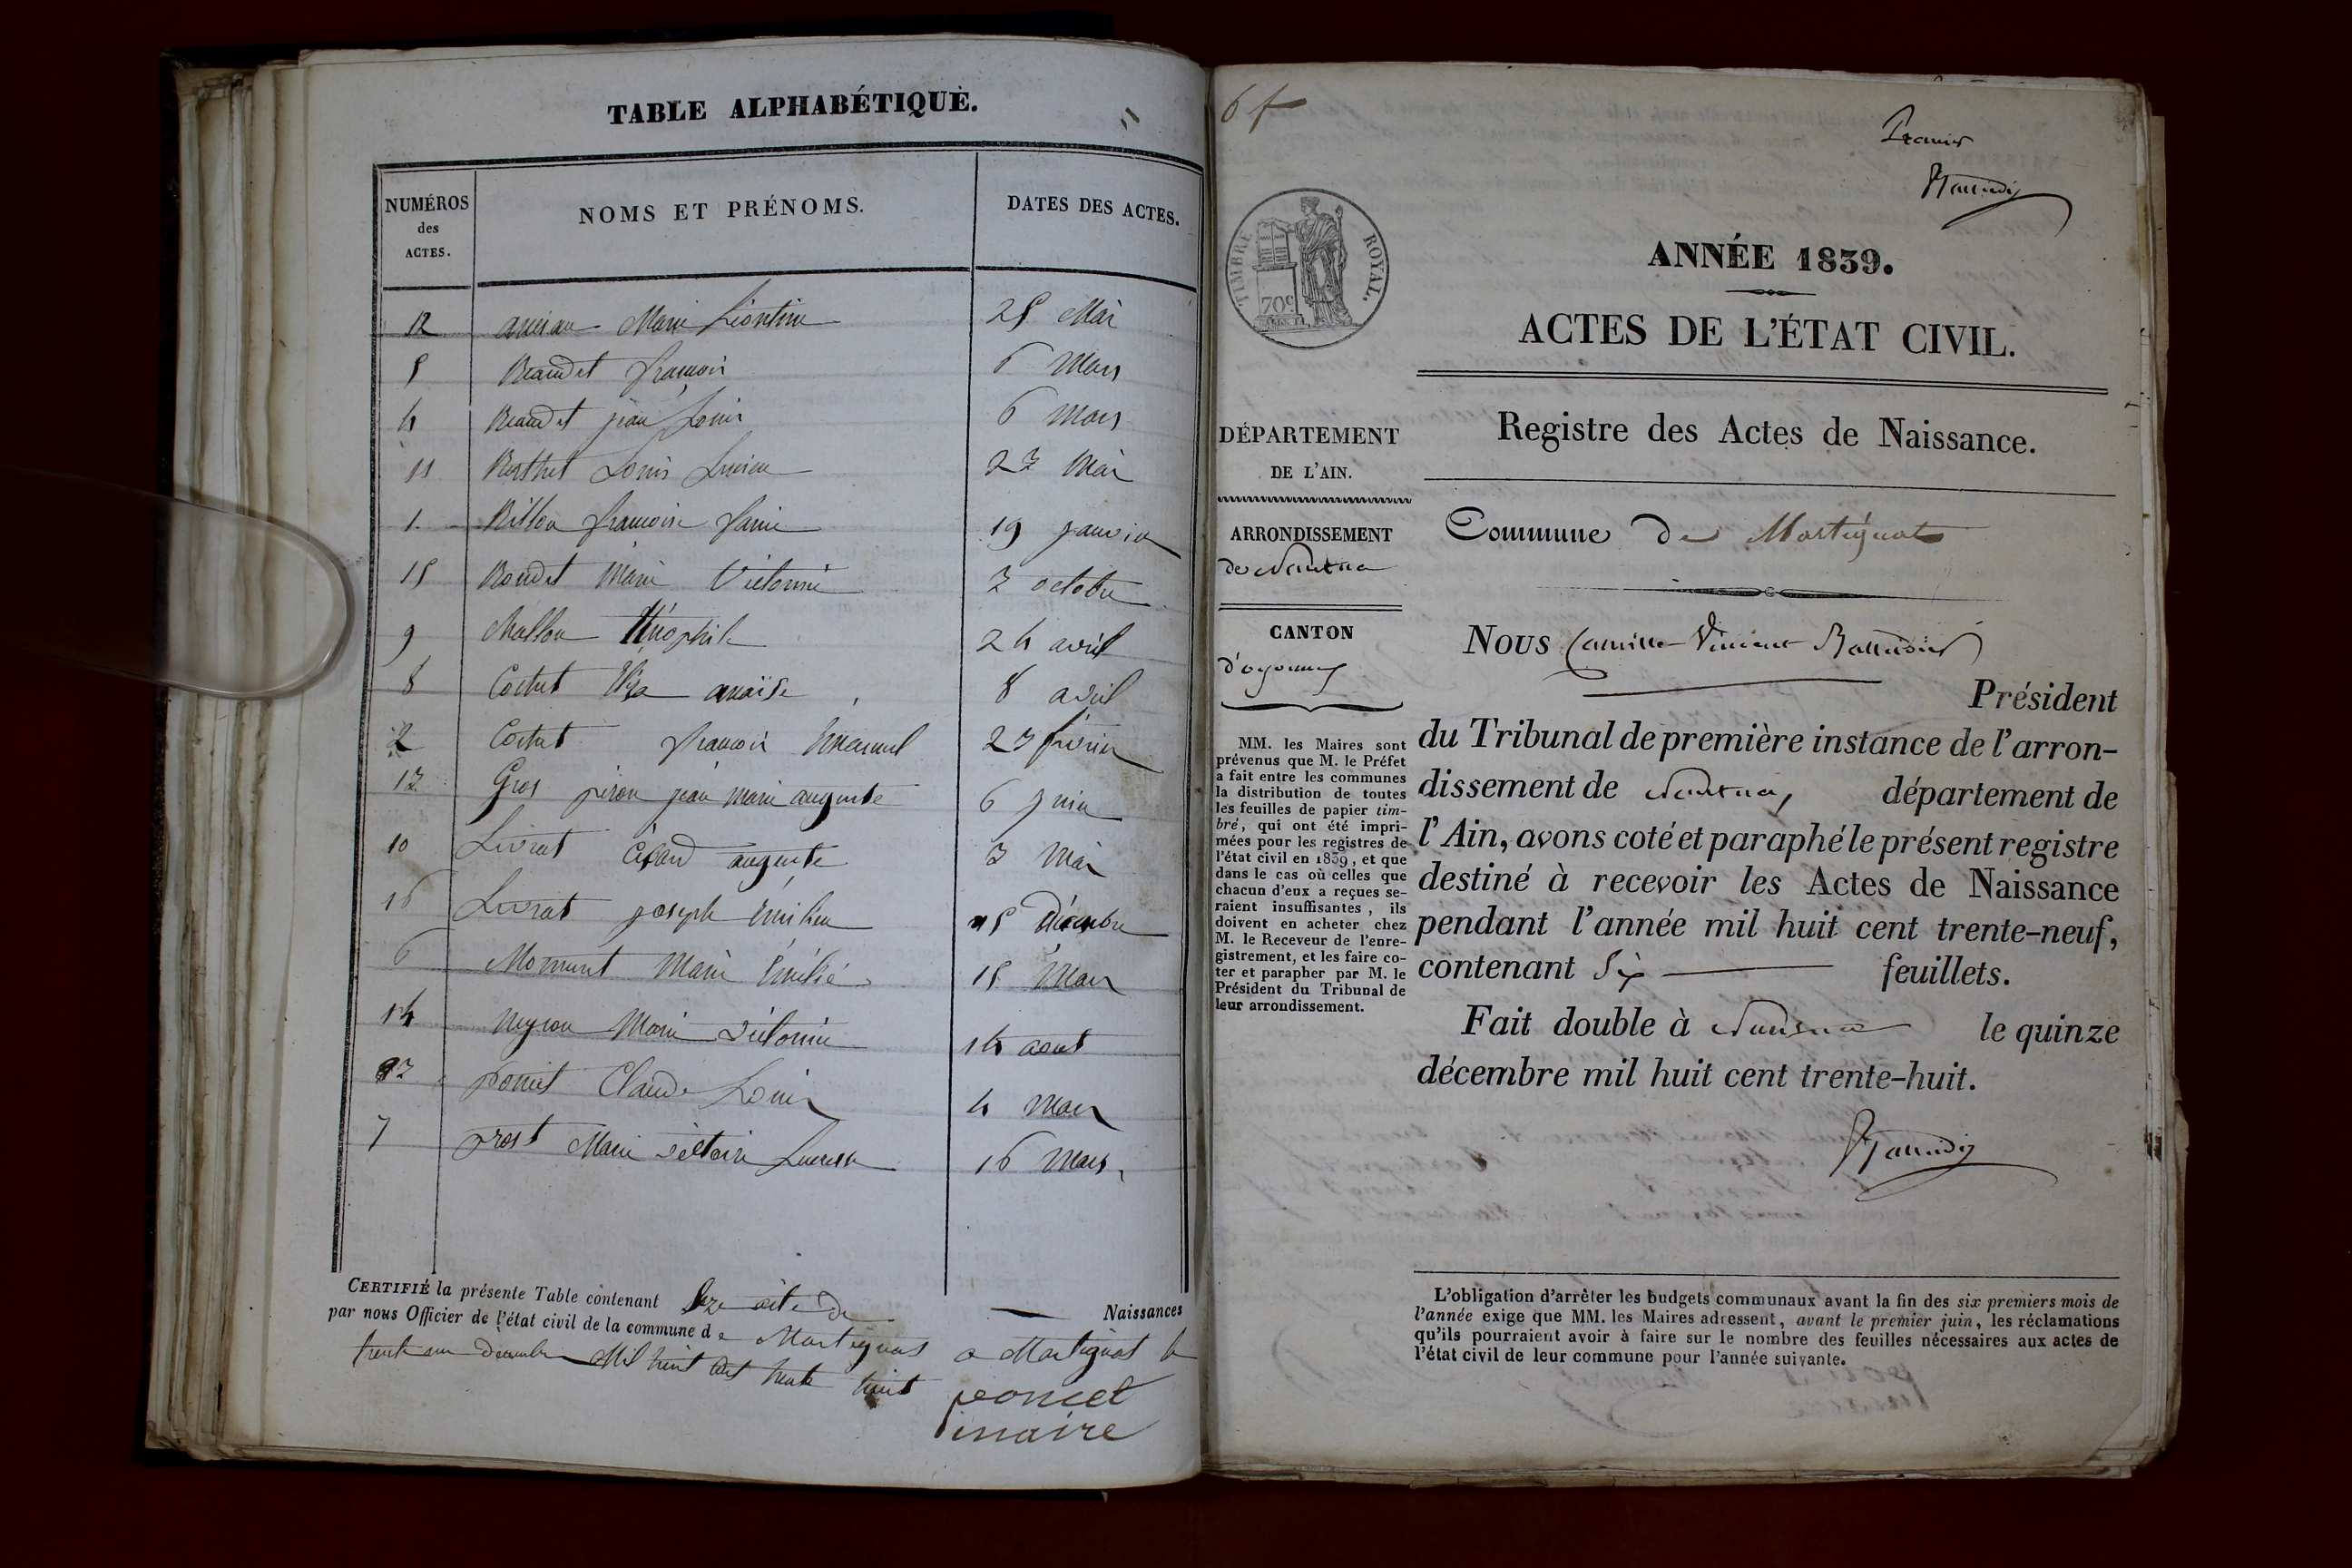 TABLE ALPHABÉTIQUE.
NUMÉROS des ACTES.
NOMS ET PRÉNOMS.
DATES DES ACTES.
12 Marie Léontine 25 Mai
5 Beaudet françois 6 Mars
4 Beaudet jean Louis 6 Mars
11 Berthet Louis Lucien 23 Mai
1. Billon françoise fanie 19 janvier
15 Bondet Marie Victorine 3 octobre
9 Chatton théophile 24 avril
8 Cochet Eliza anaïse 8 avril
2 Cochet françois Emanuel 23 février
13 Gros piron jean marie auguste 6 juin
10 Livrat auguste 3 Mai
16 Livrat joseph Emilien 15 Décembre
6 Momment Marie Emilie 15 Mars
14 Neyron Marie victorine 14 aout
3 poncet Claude Louis 4 Mars
7 prost Marie 16 Mars
CERTIFIÉ la présente Table contenant Seize acte de Naissances
par nous Officier de l'état civil de la commune de Martignat a Martignat le
trente un décembre Mil huit cent trente huit
poncet
maire
6 f
Premier
TIMBRE ROYAL.
70c
ANNÉE 1839.
ACTES DE L'ÉTAT CIVIL.
Registre des Actes de Naissance.
DÉPARTEMENT
DE L'AIN.
ARRONDISSEMENT
de Nantua
CANTON
d'oyonnax
MM. les Maires sont
prévenus que M. le Préfet
a fait entre les communes
la distribution de toutes
les feuilles de papier tim-
bré, qui ont été impri-
mées pour les registres de
l'état civil en 1839, et que
dans le cas où celles que
chacun d'eux a reçues se-
raient insuffisantes, ils
doivent en acheter chez
M. le Receveur de l'enre-
gistrement, et les faire co-
ter et parapher par M. le
Président du Tribunal de
leur arrondissement.
Commune de Martignat
Nous Camille Vincent
Président
du Tribunal de première instance de l'arron-
dissement de Nantua, département de
l'Ain, avons coté et paraphé le présent registre
destiné à recevoir les Actes de Naissance
pendant l'année mil huit cent trente-neuf,
contenant Six feuillets.
Fait double à Nantua le quinze
décembre mil huit cent trente-huit.
L'obligation d'arrêter les budgets communaux avant la fin des six premiers mois de
l'année exige que MM. les Maires adressent, avant le premier juin, les réclamations
qu'ils pourraient avoir à faire sur le nombre des feuilles nécessaires aux actes de
l'état civil de leur commune pour l'année suivante.